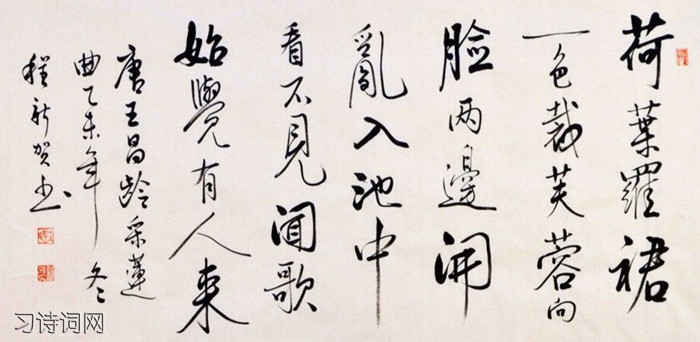 荷葉羅裙
一色裁芙蓉向
臉两邊開
亂入池中
看不見聞歌
始覺有人来
唐王昌齡采蓮
曲乙未年冬
程新贺书
习诗词网